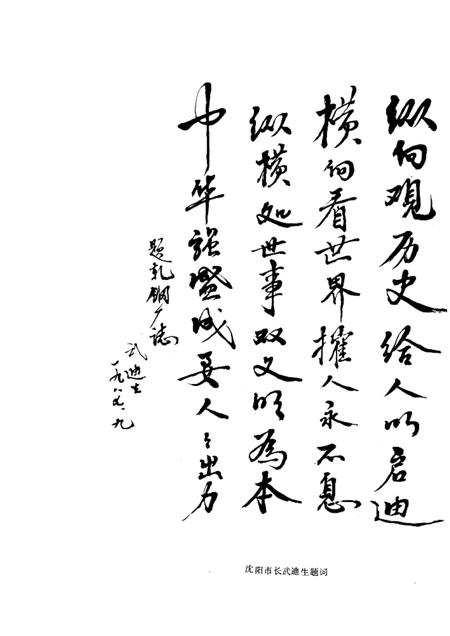 纵向观历史给人以启迪
横向看世界摧人永不息
纵横处世事双文明為本
中华强盛成要人々出力
题轧钢厂誌
武迪生
一九八六.九
沈阳市长武迪生题词